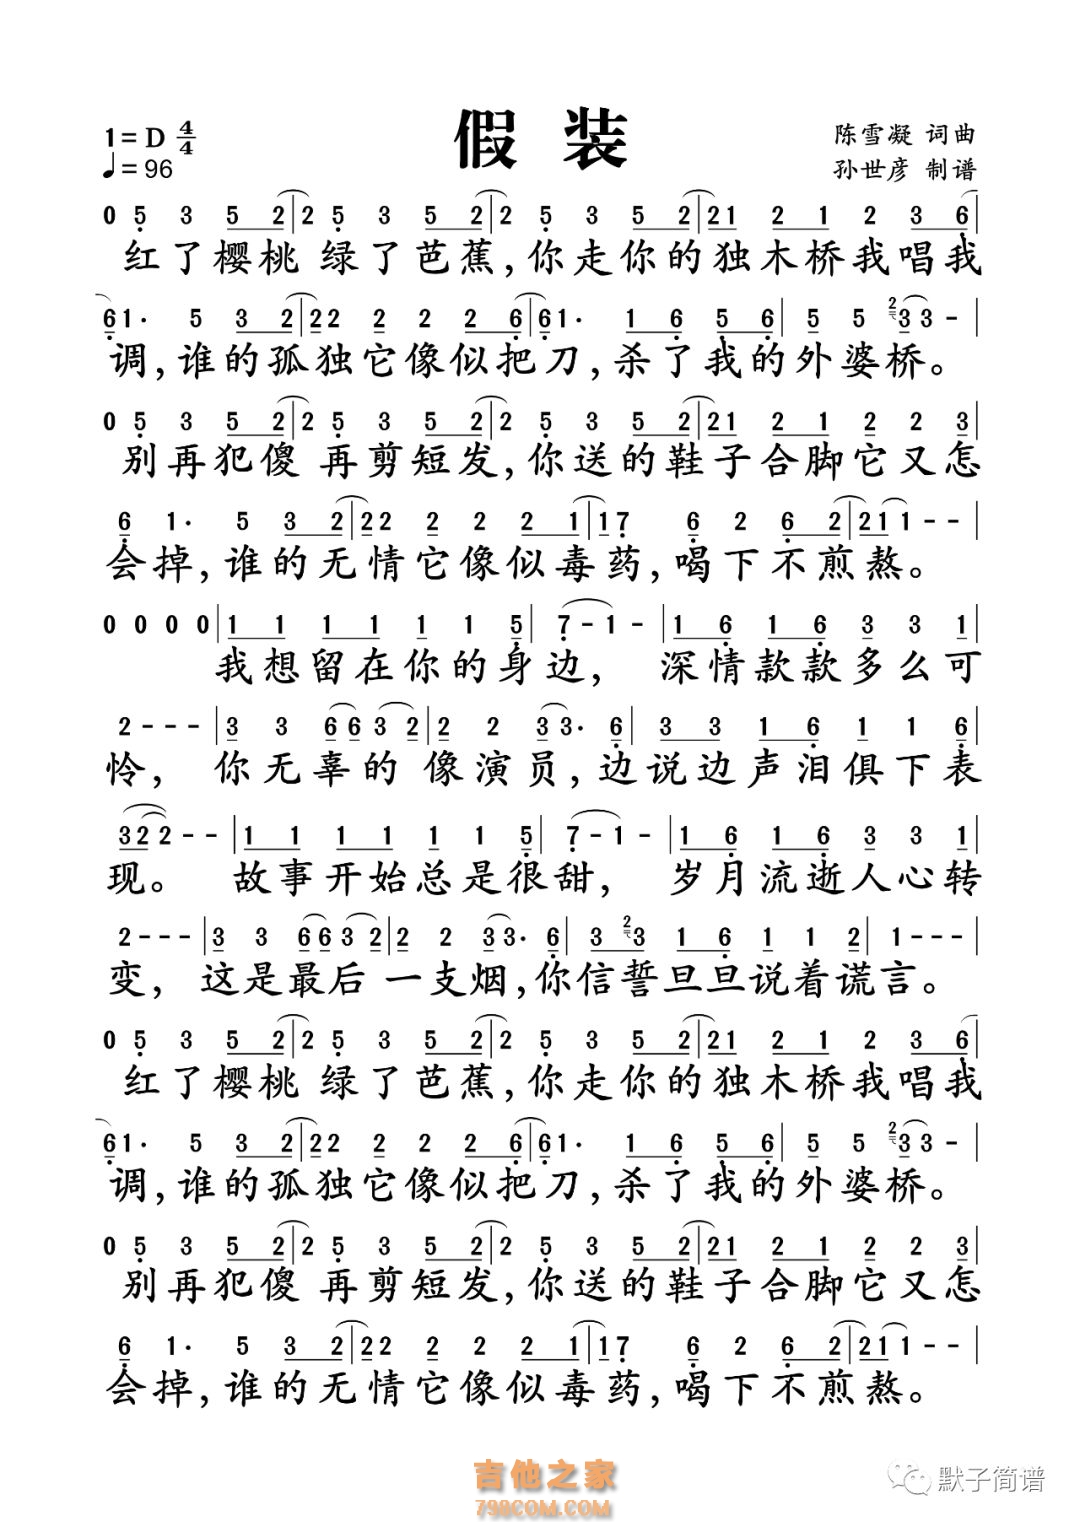 1=D 4/4
♩=96
假 装
陈雪凝 词曲
孙世彦 制谱
0 5 3 5 2|2 5 3 5 2|2 5 3 5 2|21 2 1 2 3 6|
红了樱桃 绿了芭蕉,你走你的独木桥我唱我
61· 5 3 2|22 2 2 2 6|61· 1 6 5 6|5 5 2 33-|
调,谁的孤独它像似把刀,杀了我的外婆桥。
0 5 3 5 2|2 5 3 5 2|2 5 3 5 2|21 2 1 2 2 3|
别再犯傻 再剪短发,你送的鞋子合脚它又怎
6 1· 5 3 2|22 2 2 2 1|17 6 2 6 2|211--|
会掉,谁的无情它像似毒药,喝下不煎熬。
0 0 0 0|1 1 1 1 1 1 5|7-1-|1 6 1 6 3 3 1|
我想留在你的身边, 深情款款多么可
2---|3 3 6 6 3 2|2 2 33· 6|3 3 1 6 1 1 6|
怜, 你无辜的 像演员,边说边声泪俱下表
322--|1 1 1 1 1 1 5|7-1-|1 6 1 6 3 3 1|
现。 故事开始总是很甜, 岁月流逝人心转
2---|3 3 6 6 3 2|2 2 33· 6|3 2 3 1 6 1 1 2|1---|
变, 这是最后 一支烟,你信誓旦旦说着谎言。
0 5 3 5 2|2 5 3 5 2|2 5 3 5 2|21 2 1 2 3 6|
红了樱桃 绿了芭蕉,你走你的独木桥我唱我
61· 5 3 2|22 2 2 2 6|61· 1 6 5 6|5 5 2 33-|
调,谁的孤独它像似把刀,杀了我的外婆桥。
0 5 3 5 2|2 5 3 5 2|2 5 3 5 2|21 2 1 2 2 3|
别再犯傻 再剪短发,你送的鞋子合脚它又怎
6 1· 5 3 2|22 2 2 2 1|17 6 2 6 2|211--|
会掉,谁的无情它像似毒药,喝下不煎熬。
吉他之家
798COM.COM
默子简谱